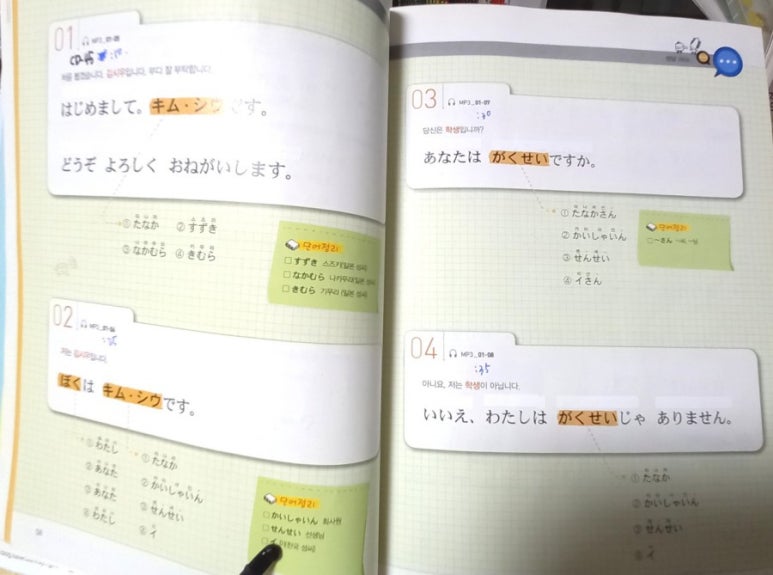 01
MP3_01-05
CD-45
처음 뵙겠습니다. 김시우입니다. 부디 잘 부탁합니다.
はじめまして。キム・シウです。
どうぞ よろしく おねがいします。
① たなか ② すずき
③ なかむら ④ きむら
단어정리
□ すずき 스즈키(일본 성씨)
□ なかむら 나카무라(일본 성씨)
□ きむら 기무라(일본 성씨)
02
MP3_01-06
저는 김시우입니다.
ぼくは キム・シウです。
① わたし ① たなか
② あなた ② かいしゃいん
③ あなた ③ せんせい
④ わたし ④ イ
단어정리
□ かいしゃいん 회사원
□ せんせい 선생님
□ イ 이(한국 성씨)
56
03
MP3_01-07
:30
당신은 학생입니까?
あなたは がくせいですか。
① たなかさん
② かいしゃいん
③ せんせい
④ イさん
단어정리
□ ~さん ~씨, ~님
04
MP3_01-08
:35
아니요, 저는 학생이 아닙니다.
いいえ、わたしは がくせいじゃ ありません。
① たなか
② かいしゃいん
③ せんせい
④ イ